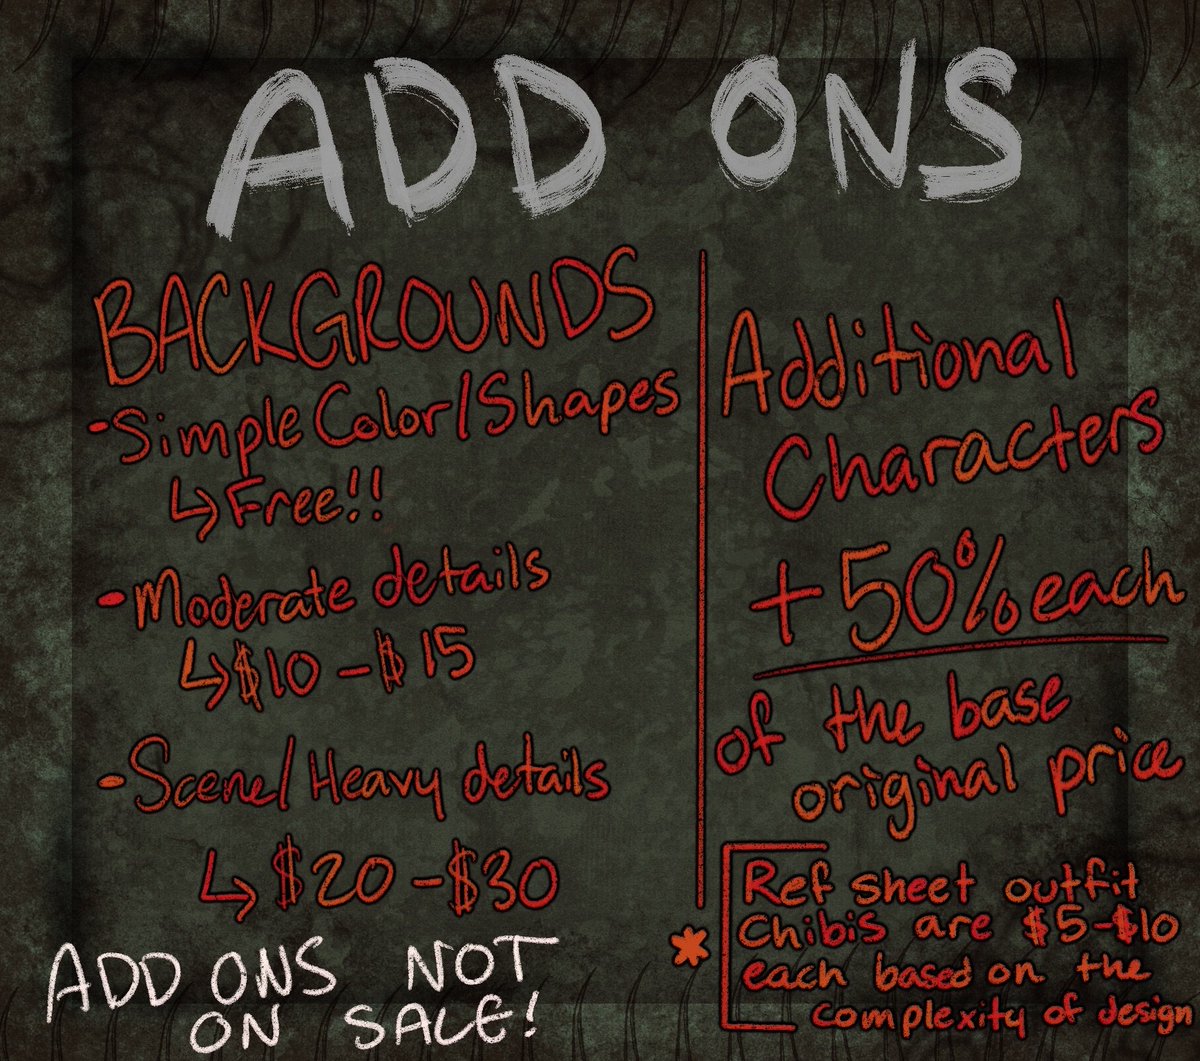 ADD ONS
BACKGROUNDS
-Simple Color/Shapes
↳Free!!
-Moderate details
↳$10-$15
-Scene/Heavy details
↳$20-$30
ADD ONS NOT
ON SALE!
Additional
Characters
+50% each
of the base
original price
* Ref sheet outfit
Chibis are $5-$10
each based on the
complexity of design